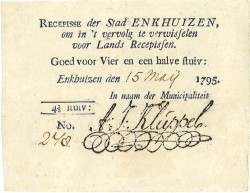 RECEPISSE der Stad ENKHUIZEN,
om in 't vervolg te verwisselen
voor Lands Recepissen.
Goed voor Vier en een halve stuiv:
Enkhuizen den 15 Maij 1795.
In naam der Municipaliteit
4½ stuiv:
A. J. Kluppel
No.
240